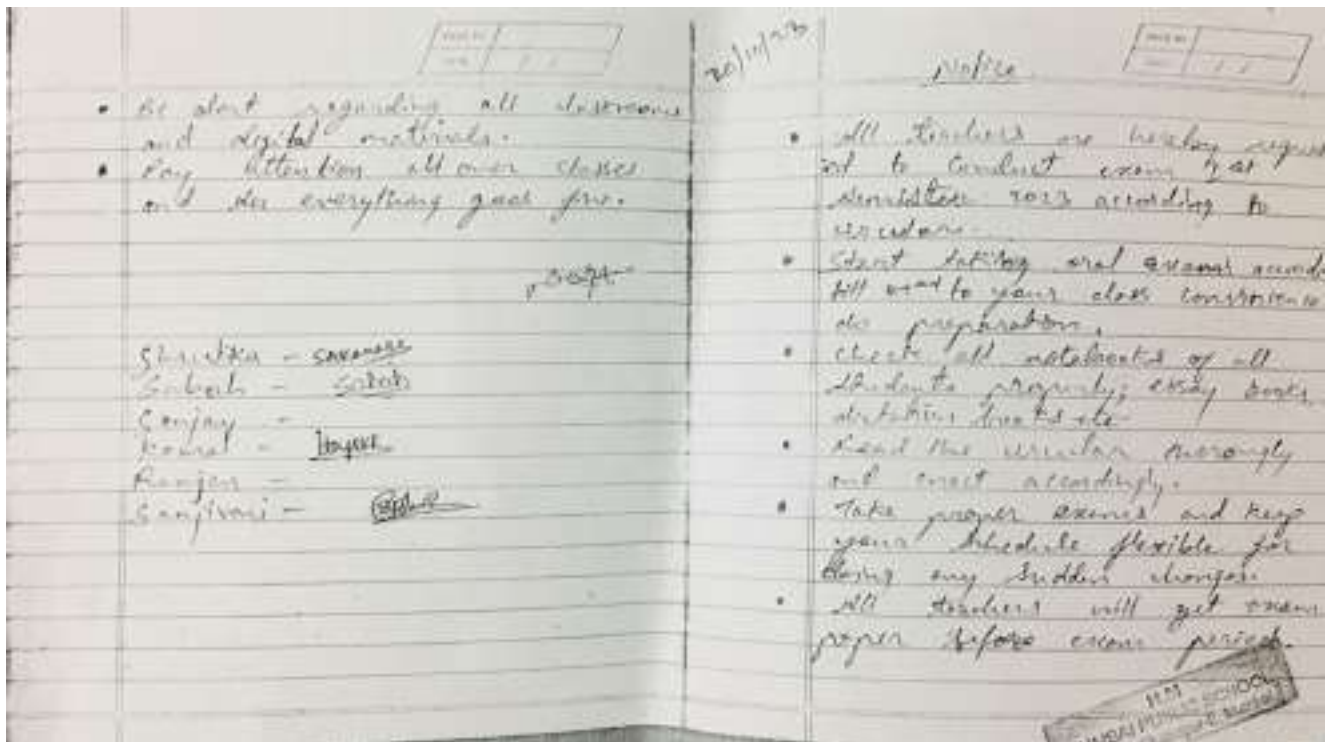 • Be alert regarding all classrooms
and digital materials.
• Pay attention all over classes
and see everything goes fine.
Shrutika - 
Sabah - Sabah
Sanjay -
Komal -
Ranjan -
Sanjivani -
20/10/23
Notice
• All teachers are hereby request
ed to conduct exam 1st
2023 according to
• Start taking oral exams accord
to your class
do preparation.
• Check all notebooks of all
students properly; essay books,
dictation books etc
• Read the circular thorougly
and accordingly.
• Take proper exams and keep
your schedule flexible for
any sudden changes.
• All teachers will get exam
paper before exam period.
SCHOOL